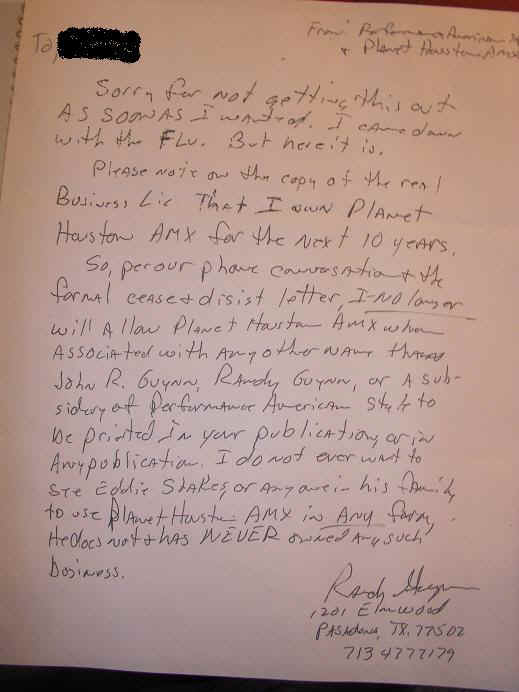 To,
From: Performance American Style
+ Planet Houston AMX
Sorry for not getting this out
AS SOON AS I wanted. I came down
with the FLU. But here it is.
Please note on the copy of the real
Business Lic That I own PLANET
Houston AMX for the next 10 years.
So, per our phone conversation + the
formal cease + disist letter, I no longer
will Allow Planet Houston AMX when
Associated with any other name than
John R. Guynn, Randy Guynn, or A sub-
sidery of Performance American Style to
be printed in your publication, or in
Any publication. I do not ever want to
see Eddie Stakes, or anyone in his family
to use Planet Houston AMX in Any form,
He does not + has NEVER owned any such
Business.
Randy Guynn
1201 Elmwood
PASADENA, TX. 77502
713 4777179